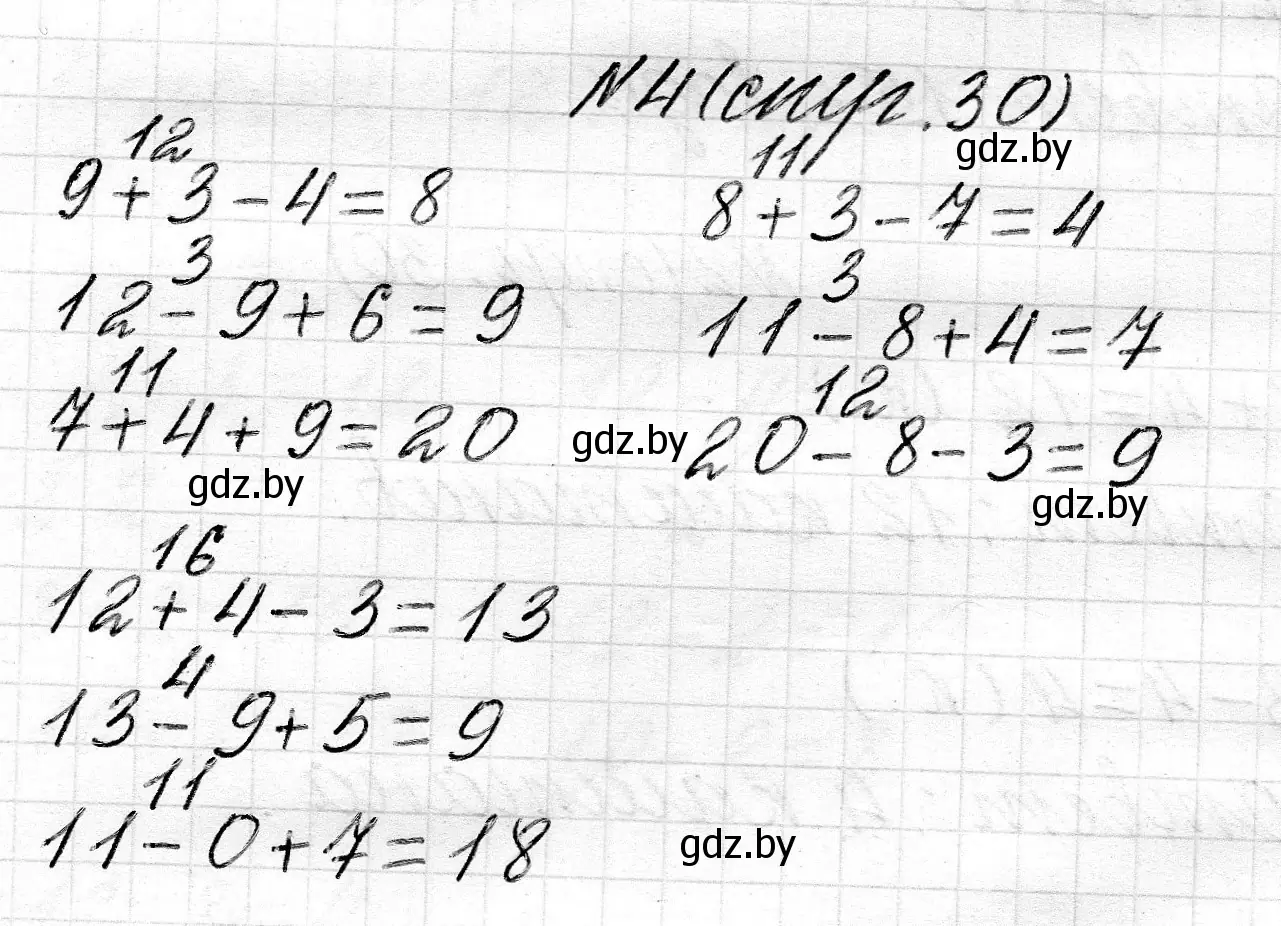 №4(стр.30)
12
9+3-4=8
3
12-9+6=9
11
7+4+9=20
11
8+3-7=4
3
11-8+4=7
12
20-8-3=9
16
12+4-3=13
4
13-9+5=9
11
11-0+7=18
gdz.by
gdz.by
gdz.by
gdz.by
gdz.by